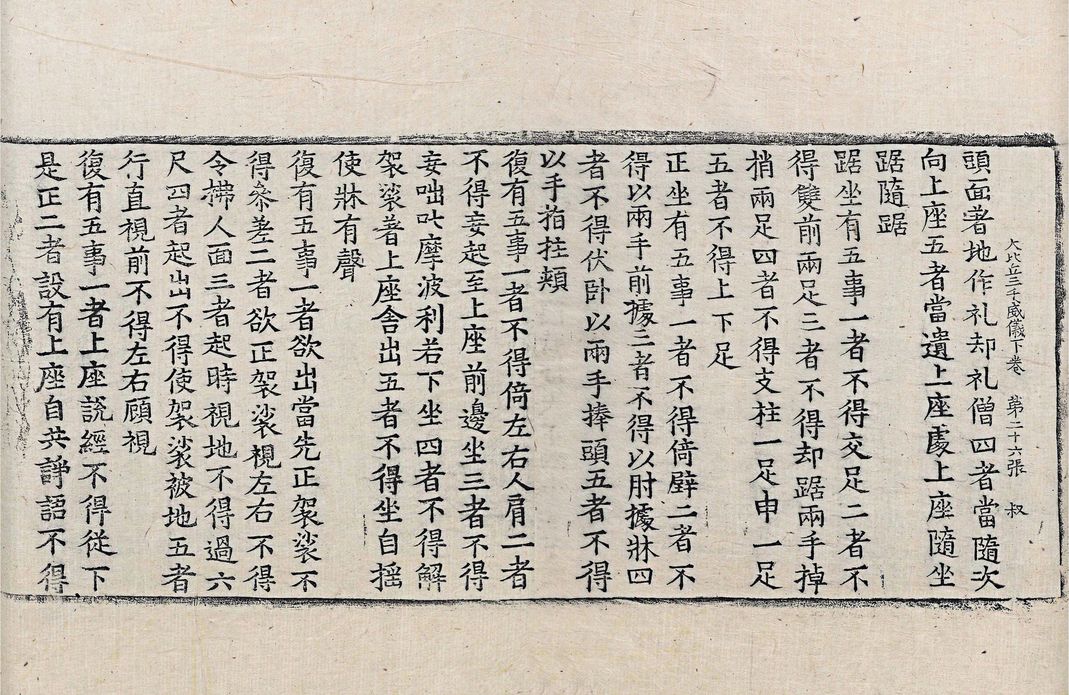 大比丘三千威儀下卷 第二十六張 叔
頭面著地作礼却礼僧四者當隨次
向上座五者當遺上座處上座隨坐
踞隨踞
踞坐有五事一者不得交足二者不
得雙前兩足三者不得却踞兩手掉
捎兩足四者不得支柱一足申一足
五者不得上下足
正坐有五事一者不得倚壁二者不
得以兩手前據三者不得以肘據牀四
者不得伏卧以兩手捧頭五者不得
以手指拄頰
復有五事一者不得倚左右人肩二者
不得妄起至上座前邊坐三者不得
妄咄叱摩波利若下坐四者不得解
袈裟著上座舍出五者不得坐自揺
使牀有聲
復有五事一者欲出當先正袈裟不
得叅差二者欲正袈裟視左右不得
令拂人面三者起時視地不得過六
尺四者起出不得使袈裟被地五者
行直視前不得左右顧視
復有五事一者上座説經不得従下
是正二者設有上座自共諍語不得